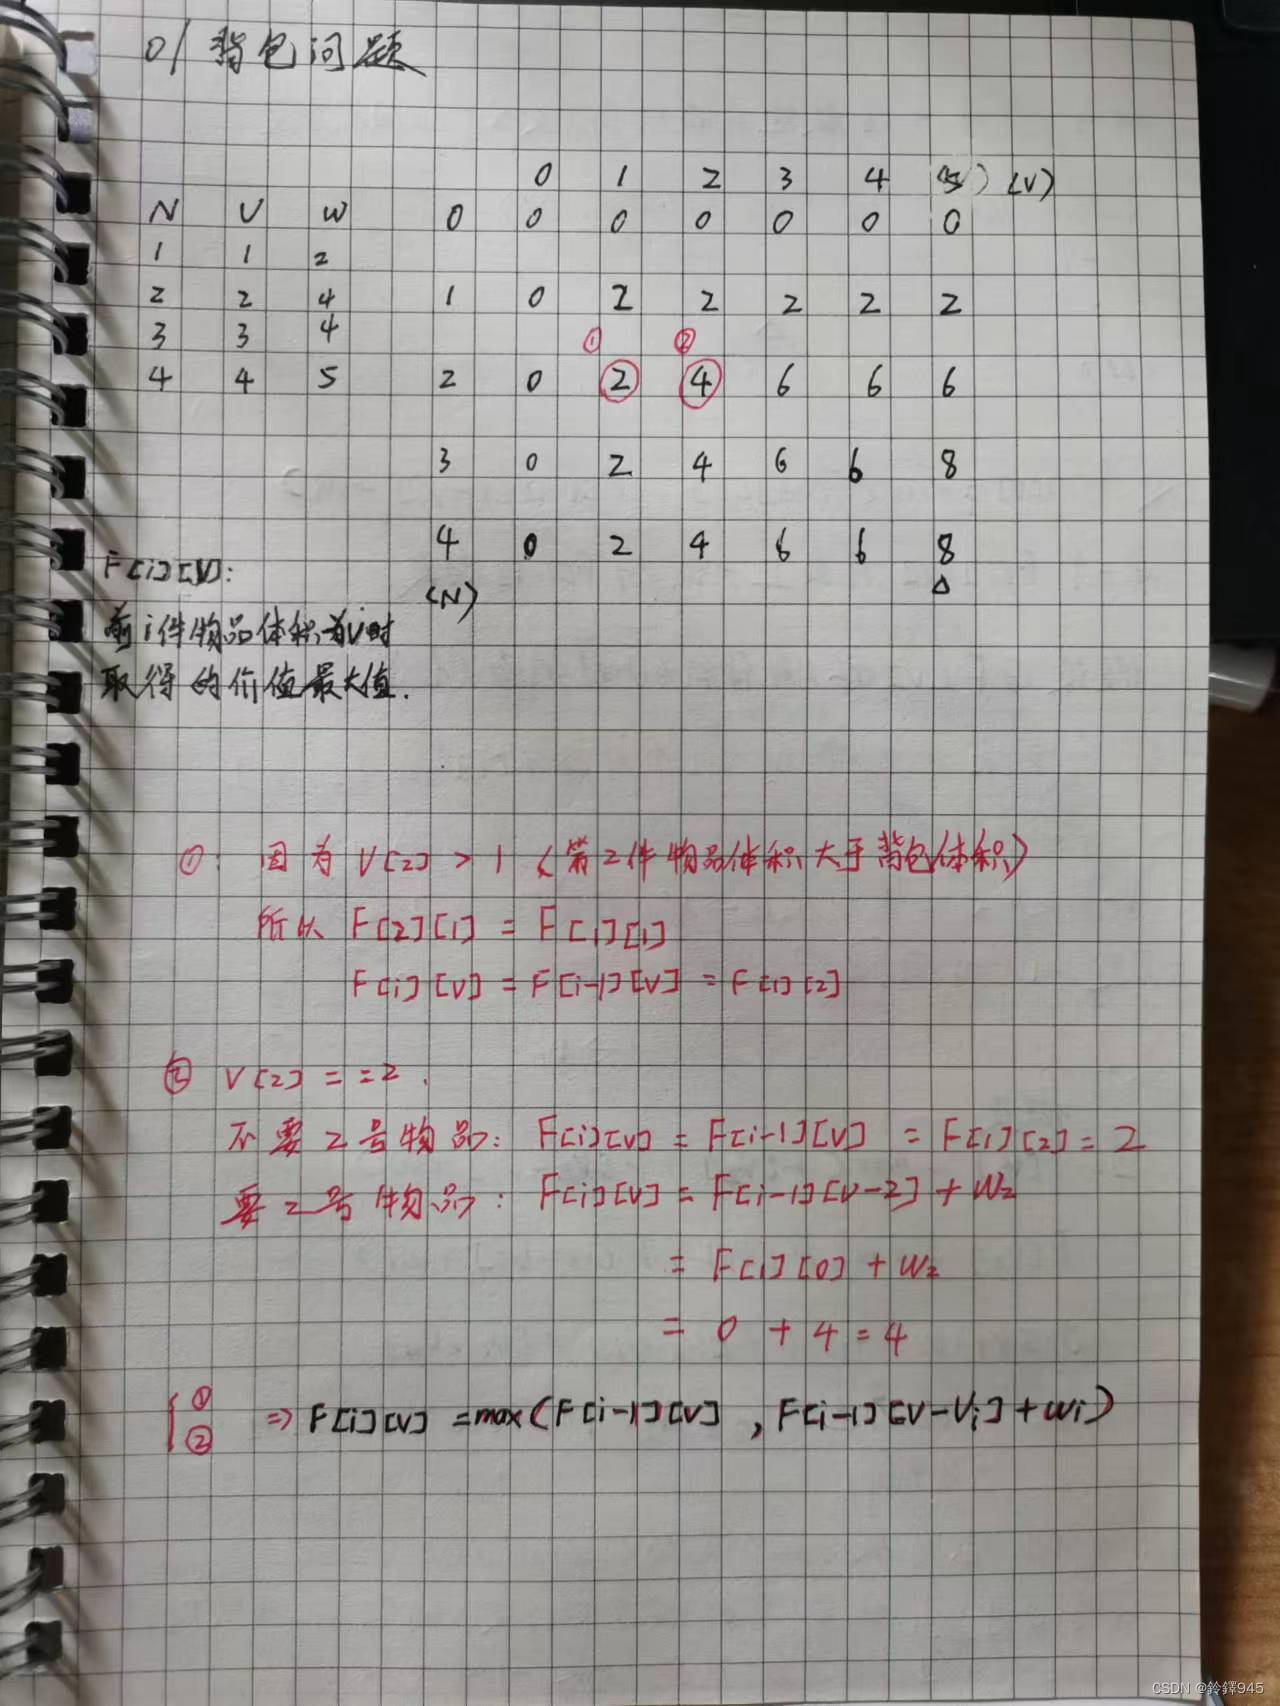 01背包问题
0 1 2 3 4 (5) (V)
N V W 0 0 0 0 0 0 0
1 1 2
2 2 4 1 0 2 2 2 2 2
3 3 4 ① ②
4 4 5 2 0 2 4 6 6 6
3 0 2 4 6 6 8
4 0 2 4 6 6 8
F[i][V]: (N) △
前i件物品体积为V时
取得的价值最大值.
①: 因为 V[2] > 1 (第2件物品体积大于背包体积)
所以 F[2][1] = F[1][1]
F[i][V] = F[i-1][V] = F[1][2]
② V[2] = = 2 .
不要2号物品: F[i][V] = F[i-1][V] = F[1][2] = 2
要2号物品: F[i][V] = F[i-1][V-2] + W₂
= F[1][0] + W₂
= 0 + 4 = 4
①
② => F[i][V] = max(F[i-1][V] , F[i-1][V-Vi] + Wi)
CSDN @鈴鐸945